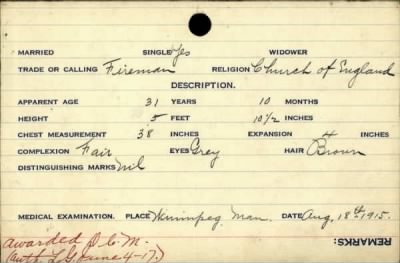 MARRIED SINGLE Yes WIDOWER
TRADE OR CALLING Fireman RELIGION Church of England
DESCRIPTION.
APPARENT AGE 31 YEARS 10 MONTHS
HEIGHT 5 FEET 10 1/2 INCHES
CHEST MEASUREMENT 38 INCHES EXPANSION 4 INCHES
COMPLEXION Fair EYES Grey HAIR Brown
DISTINGUISHING MARKS Nil
MEDICAL EXAMINATION. PLACE Winnipeg, Man. DATE Aug. 18th 1915.
REMARKS:
Awarded D.C.M.
(Auth. L.G. June 4-17.)